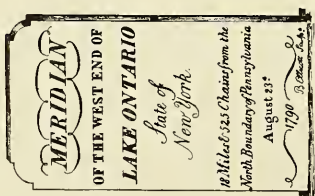 MERIDIAN
OF THE WEST END OF
LAKE ONTARIO
State of
New York.
18 Miles & 525 Chains from the
North Boundary of Pennsylvania
August 23d
1790